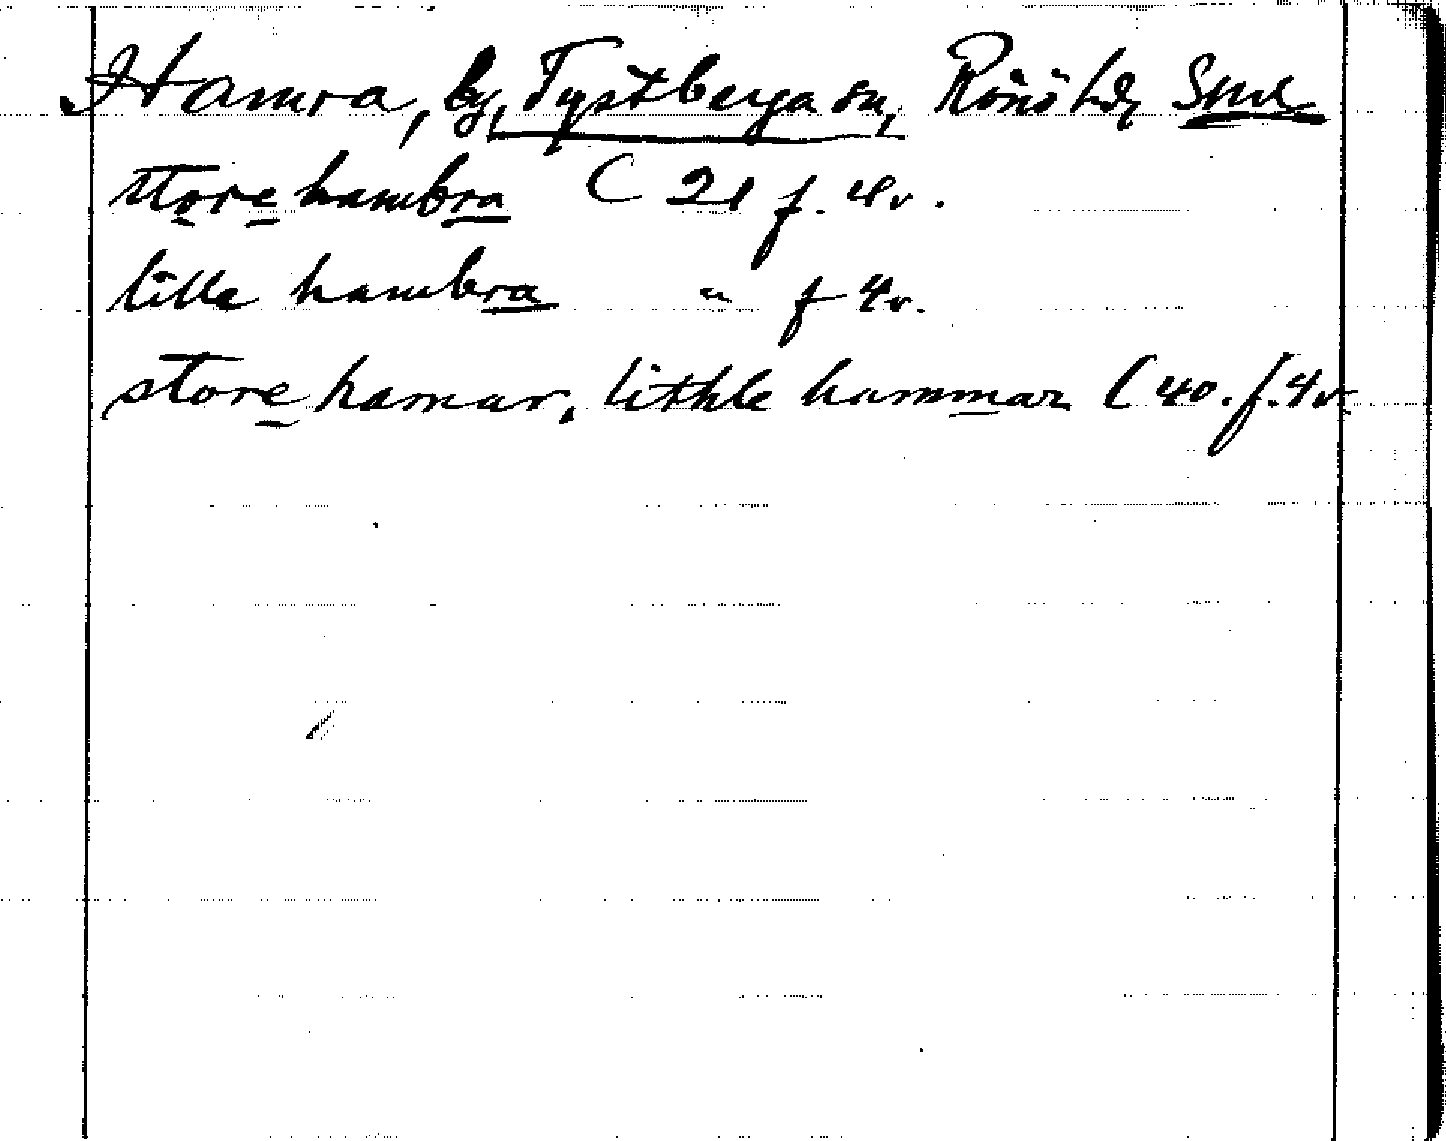 Hamra, by, Tystberga sn, Rönö hd, Srml
store hambra C 21 f. 4v.
lille hambra " f 4v.
store hamar, lithle hammar C 40. f. 4v